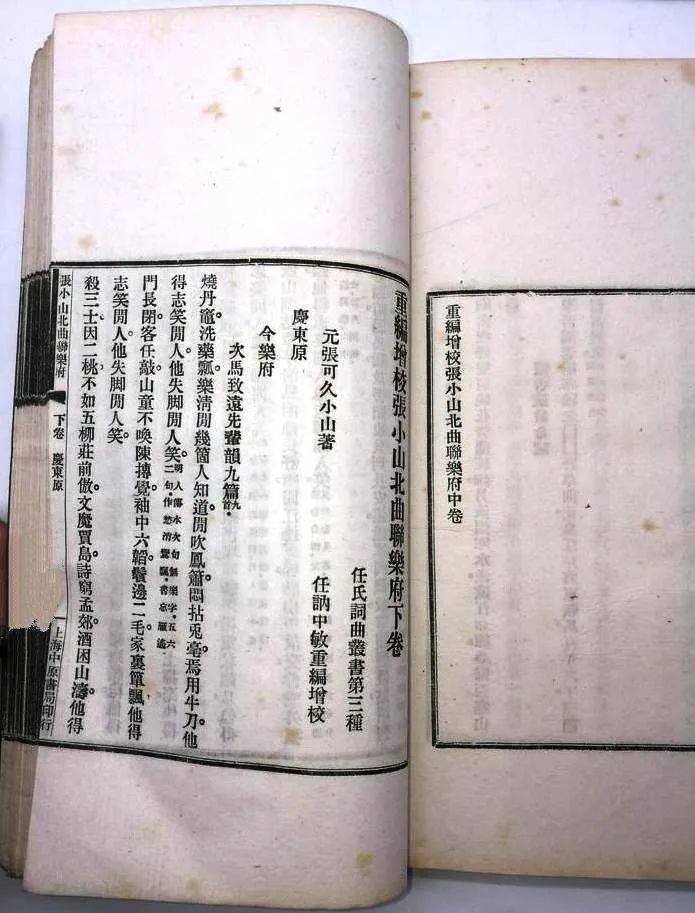 重編增校張小山北曲聯樂府中卷
重編增校張小山北曲聯樂府下卷
任氏詞曲叢書第三種
元張可久小山著 任訥中敏重編增校
慶東原
今樂府
次馬致遠先輩韻九篇九首。
燒丹竈。洗藥瓢。樂清閒幾箇人知道。閒吹鳳簫。悶拈兎毫。焉用牛刀。他
得志笑閒人。他失脚閒人笑。次句無樂字。五六
二句。作愁消
門長閉。客任敲。山童不喚陳摶覺。袖中六韜。鬢邊二毛。家裏簞瓢。他得
志笑閒人。他失脚閒人笑。
殺三士。因二桃。不如五柳莊前傲。文魔賈島。詩窮孟郊。酒困山濤。他得
張小山北曲聯樂府 下卷 慶東原 上海中原書局印行